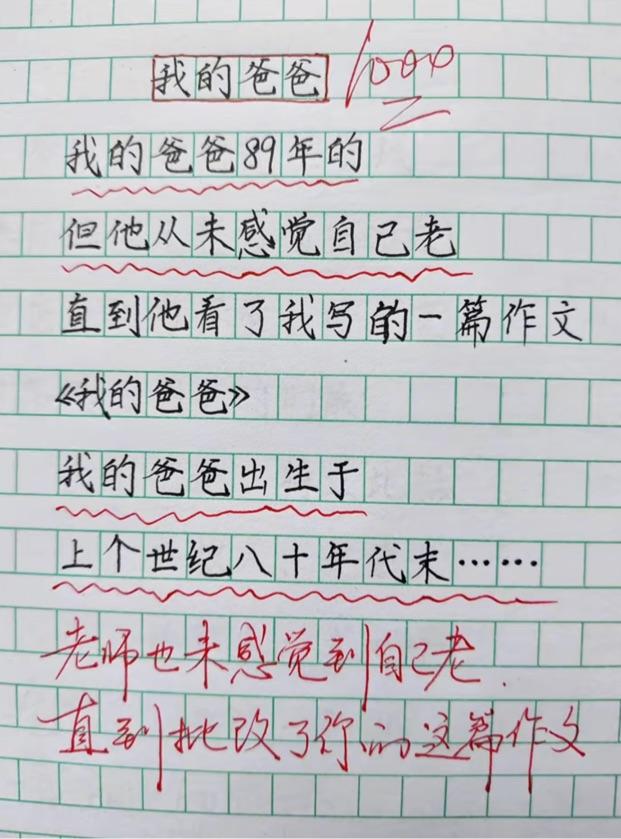 我的爸爸 1000
我的爸爸89年的
但他从未感觉自己老
直到他看了我写的一篇作文
《我的爸爸》
我的爸爸出生于
上个世纪八十年代末……
老师也未感觉到自己老.
直到批改了你的这篇作文